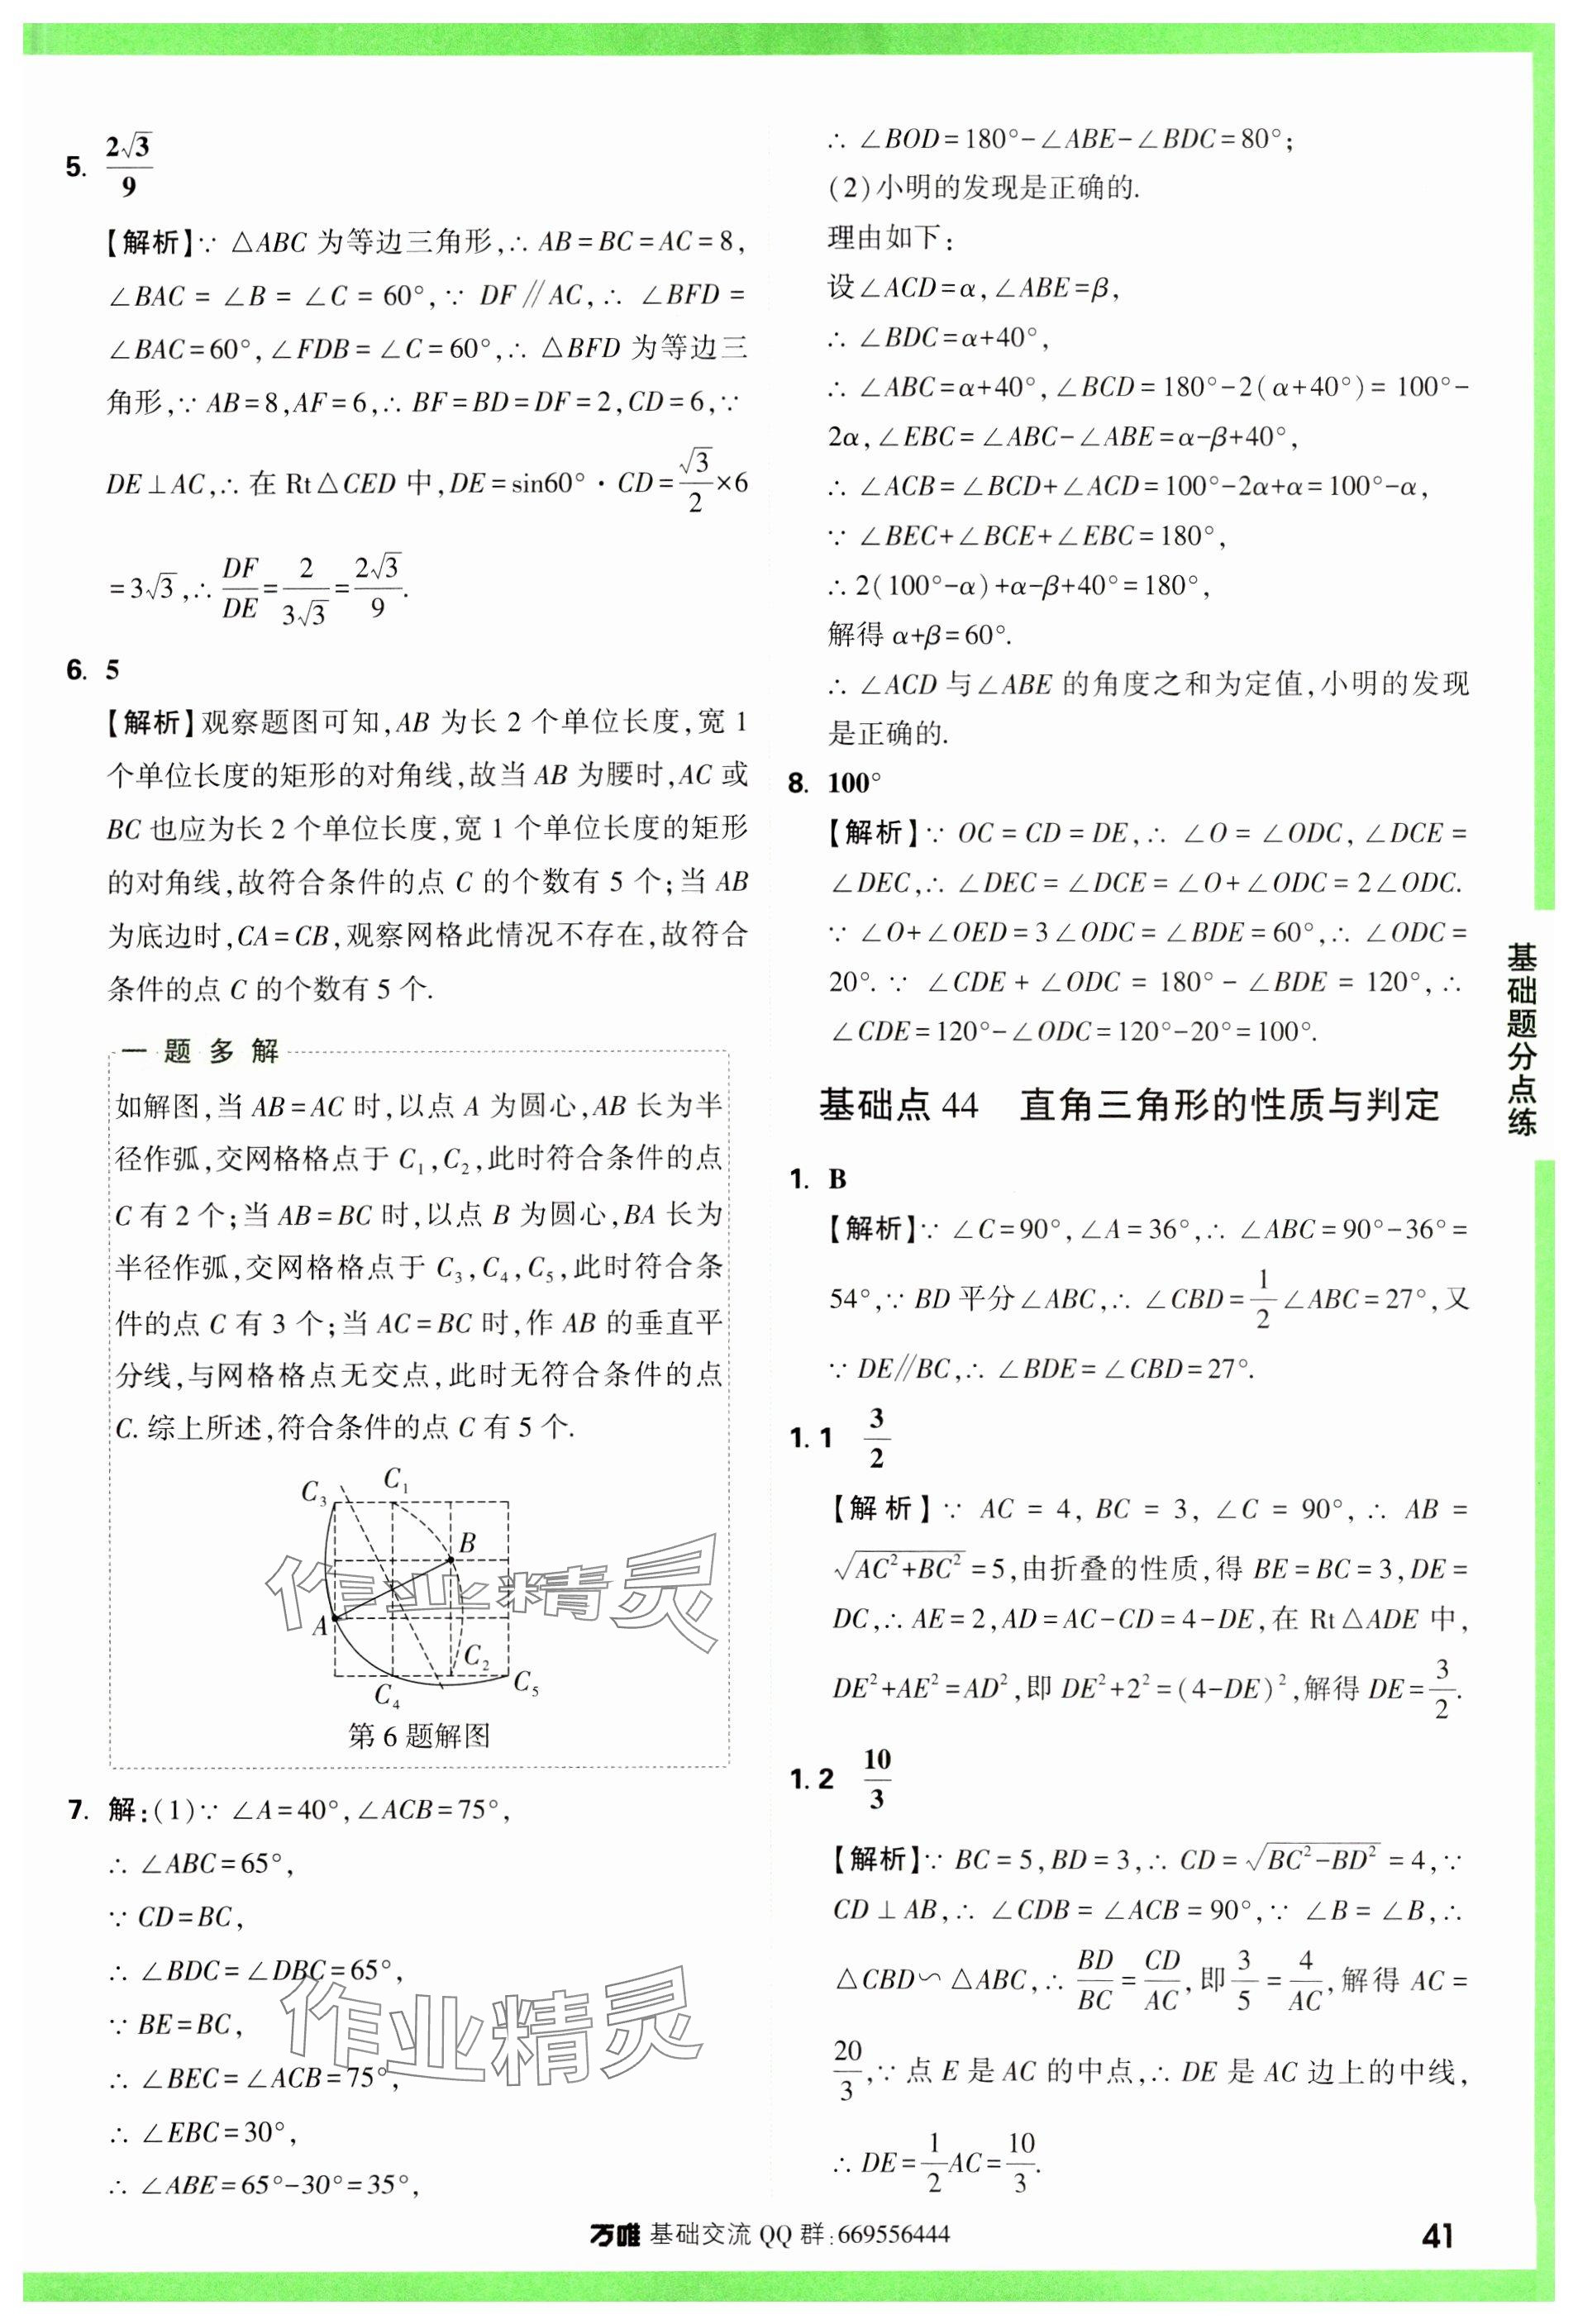 5. 2√3/9
【解析】∵ △ABC 为等边三角形,∴ AB=BC=AC=8,
∠BAC = ∠B = ∠C = 60°,∵ DF∥AC,∴ ∠BFD =
∠BAC=60°,∠FDB=∠C=60°,∴ △BFD 为等边三
角形,∵ AB=8,AF=6,∴ BF=BD=DF=2,CD=6,∵
DE⊥AC,∴ 在 Rt△CED 中,DE=sin60°·CD=√3/2×6
=3√3,∴ DF/DE=2/3√3=2√3/9.
6. 5
【解析】观察题图可知,AB 为长 2 个单位长度,宽 1
个单位长度的矩形的对角线,故当 AB 为腰时,AC 或
BC 也应为长 2 个单位长度,宽 1 个单位长度的矩形
的对角线,故符合条件的点 C 的个数有 5 个;当 AB
为底边时,CA=CB,观察网格此情况不存在,故符合
条件的点 C 的个数有 5 个.
一题多解
如解图,当 AB=AC 时,以点 A 为圆心,AB 长为半
径作弧,交网格格点于 C₁,C₂,此时符合条件的点
C 有 2 个;当 AB=BC 时,以点 B 为圆心,BA 长为
半径作弧,交网格格点于 C₃,C₄,C₅,此时符合条
件的点 C 有 3 个;当 AC=BC 时,作 AB 的垂直平
分线,与网格格点无交点,此时无符合条件的点
C. 综上所述,符合条件的点 C 有 5 个.
C₃
C₁
B
A
C₂
C₄
C₅
第 6 题解图
作业精灵
7. 解:(1)∵ ∠A=40°,∠ACB=75°,
∴ ∠ABC=65°,
∵ CD=BC,
∴ ∠BDC=∠DBC=65°,
∵ BE=BC,
∴ ∠BEC=∠ACB=75°,
∴ ∠EBC=30°,
∴ ∠ABE=65°-30°=35°,
作业精灵
∴ ∠BOD=180°-∠ABE-∠BDC=80°;
(2)小明的发现是正确的.
理由如下:
设∠ACD=α,∠ABE=β,
∴ ∠BDC=α+40°,
∴ ∠ABC=α+40°,∠BCD=180°-2(α+40°)=100°-
2α,∠EBC=∠ABC-∠ABE=α-β+40°,
∴ ∠ACB=∠BCD+∠ACD=100°-2α+α=100°-α,
∵ ∠BEC+∠BCE+∠EBC=180°,
∴ 2(100°-α)+α-β+40°=180°,
解得 α+β=60°.
∴ ∠ACD 与∠ABE 的角度之和为定值,小明的发现
是正确的.
8. 100°
【解析】∵ OC=CD=DE,∴ ∠O=∠ODC,∠DCE=
∠DEC,∴ ∠DEC=∠DCE=∠O+∠ODC=2∠ODC.
∵ ∠O+∠OED=3∠ODC=∠BDE=60°,∴ ∠ODC=
20°. ∵ ∠CDE + ∠ODC = 180° - ∠BDE = 120°,∴
∠CDE=120°-∠ODC=120°-20°=100°.
基础点 44 直角三角形的性质与判定
1. B
【解析】∵ ∠C=90°,∠A=36°,∴ ∠ABC=90°-36°=
54°,∵ BD 平分∠ABC,∴ ∠CBD=1/2∠ABC=27°,又
∵ DE∥BC,∴ ∠BDE=∠CBD=27°.
1.1 3/2
【解析】∵ AC = 4, BC = 3, ∠C = 90°, ∴ AB =
√(AC²+BC²)=5,由折叠的性质,得 BE=BC=3,DE=
DC,∴ AE=2,AD=AC-CD=4-DE,在 Rt△ADE 中,
DE²+AE²=AD²,即 DE²+2²=(4-DE)²,解得 DE=3/2.
1.2 10/3
【解析】∵ BC=5,BD=3,∴ CD=√(BC²-BD²)=4,∵
CD⊥AB,∴ ∠CDB=∠ACB=90°,∵ ∠B=∠B,∴
△CBD∽△ABC,∴ BD/BC=CD/AC,即3/5=4/AC,解得 AC=
20/3,∵ 点 E 是 AC 的中点,∴ DE 是 AC 边上的中线,
∴ DE=1/2AC=10/3.
基础题分点练
万唯 基础交流 QQ 群:669556444
41